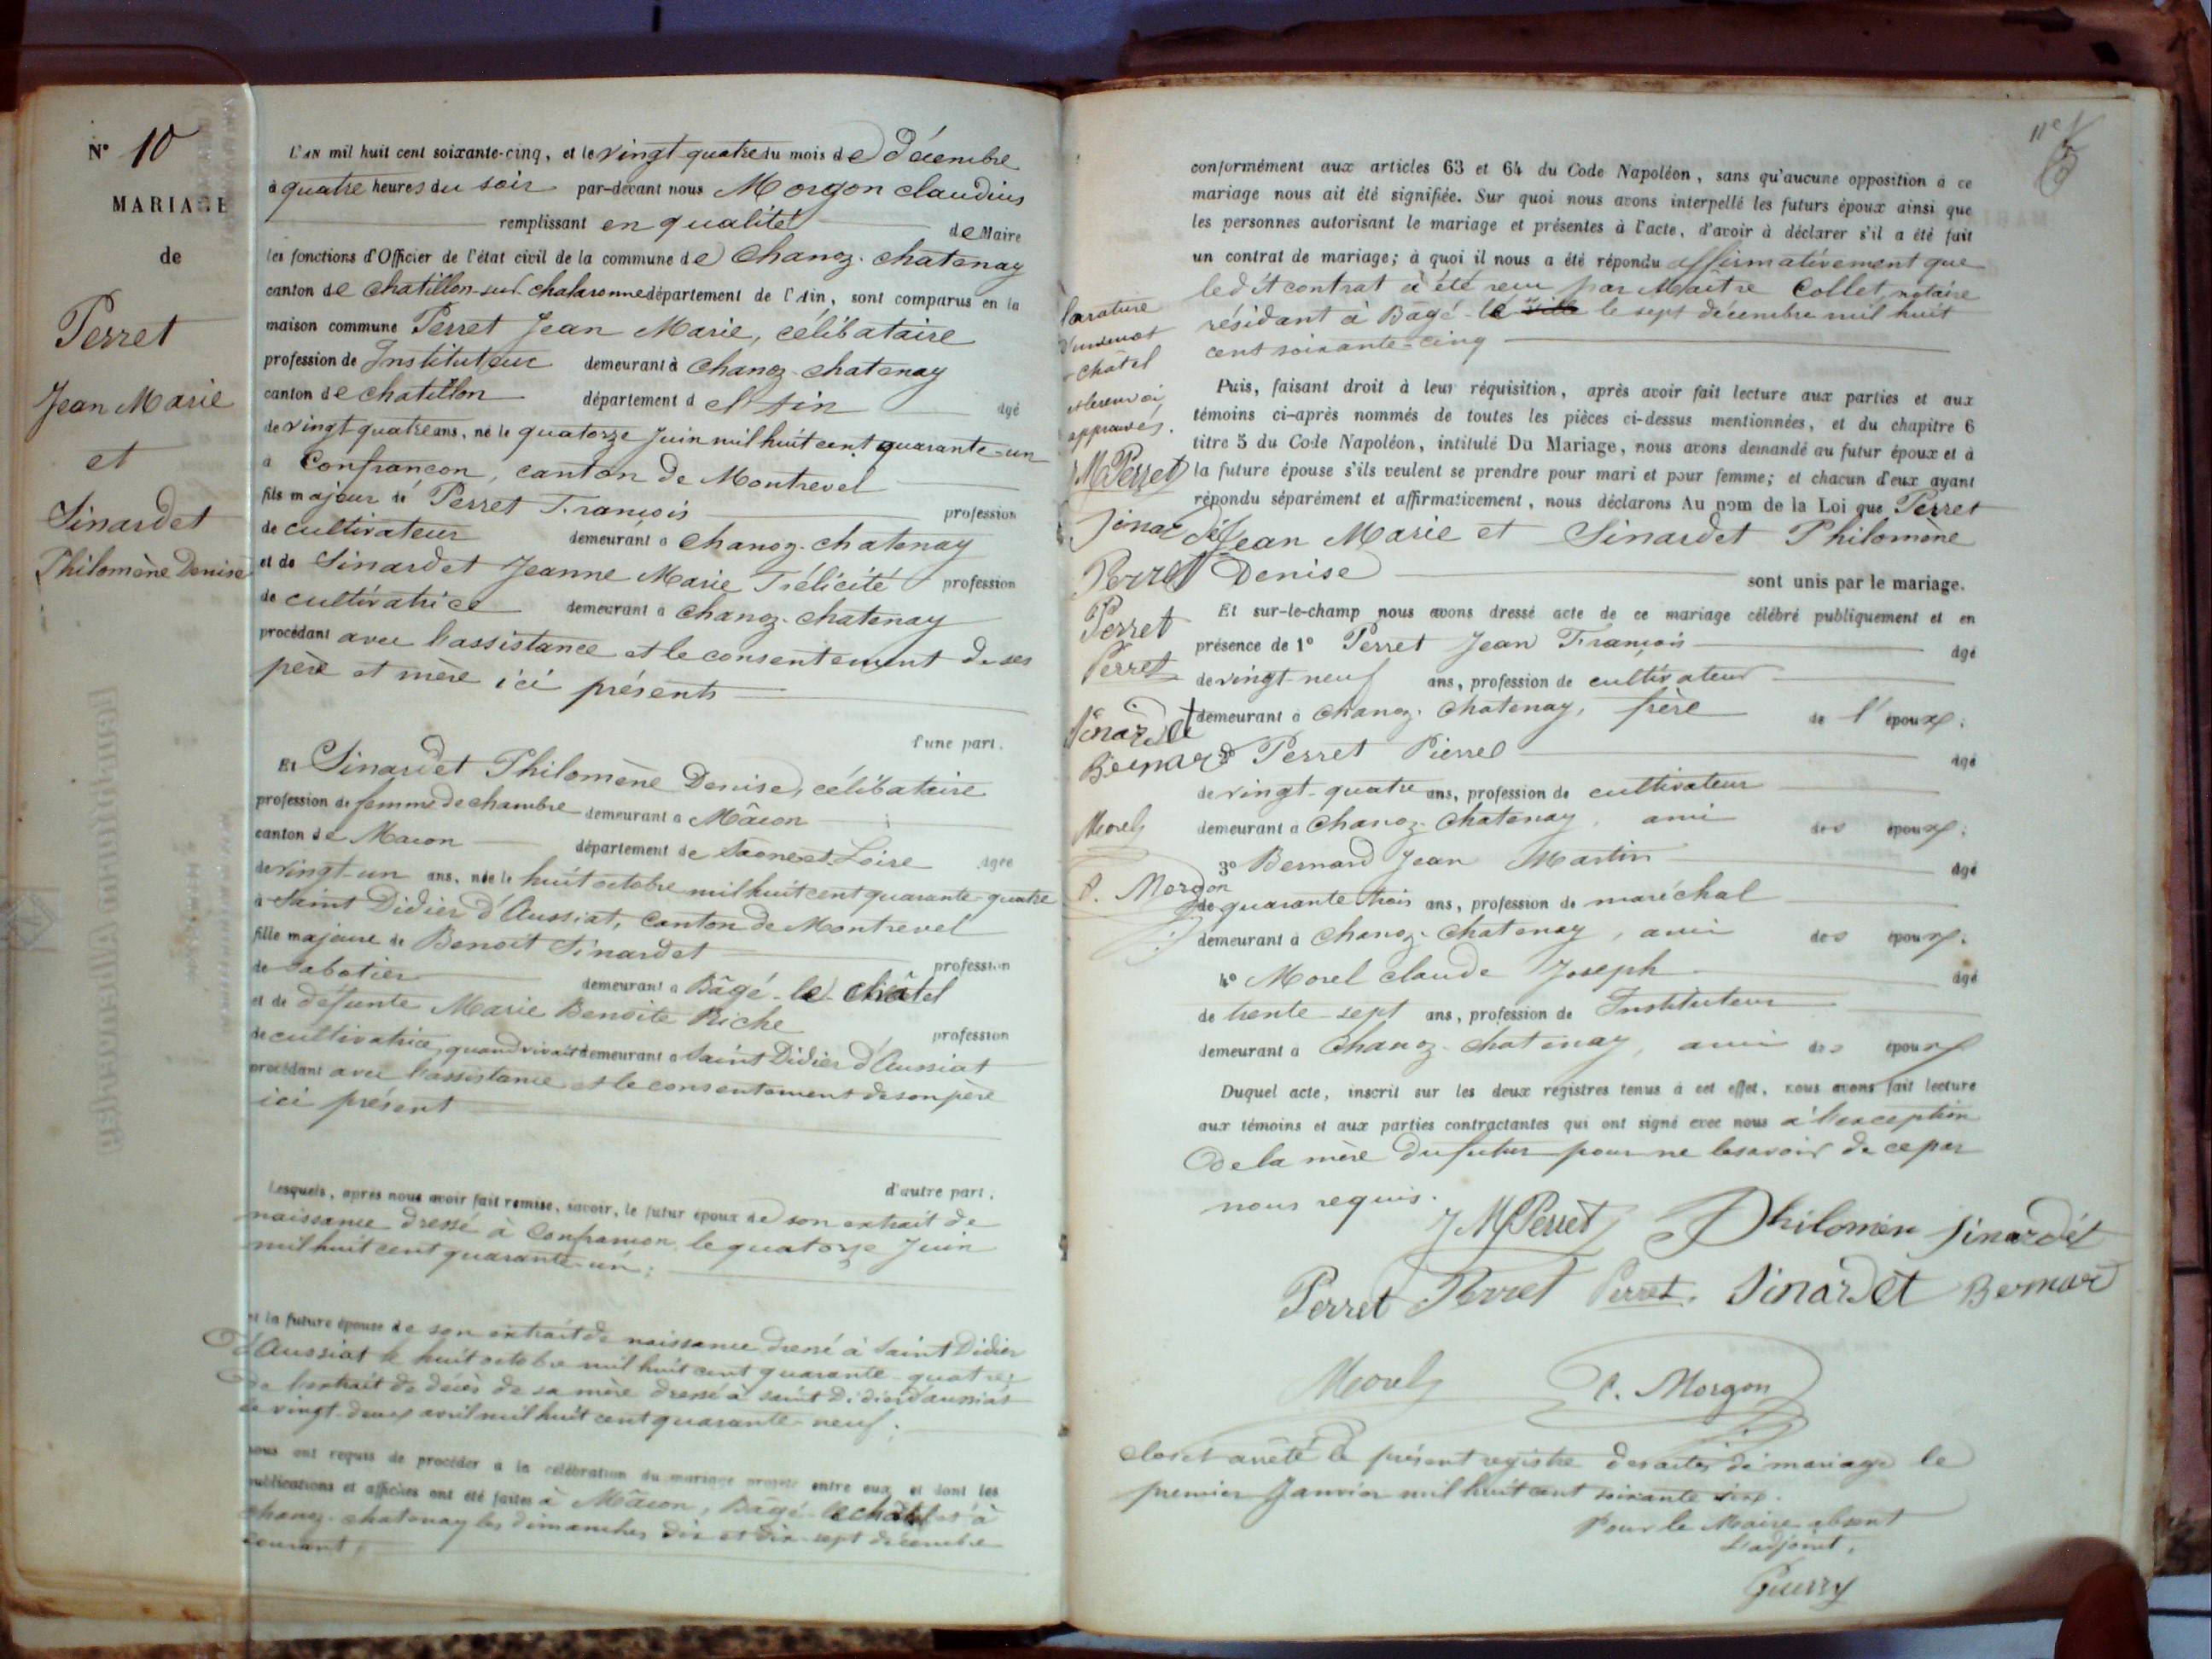 N° 10
MARIAGE
de
Perret
Jean Marie
et
Sinardet
Philomène Denise
L'AN mil huit cent soixante-cinq, et le vingt-quatre du mois de Décembre
à quatre heures du soir par-devant nous Morgon claudius
remplissant en qualité de Maire
les fonctions d'Officier de l'état civil de la commune de Chanoz-chatenay
canton de chatillon-sur-chalaronne département de l'Ain, sont comparus en la
maison commune Perret Jean Marie, célibataire
profession de Instituteur demeurant à chanoz-chatenay
canton de chatillon département d el'Ain âgé
de vingt-quatre ans, né le quatorze Juin mil huit cent quarante-un
à Confrançon, canton de Montrevel
fils majeur de Perret François profession
de cultivateur demeurant à chanoz-chatenay
et de Sinardet Jeanne Marie Félicité profession
de cultivatrice demeurant à chanoz-chatenay
procédant avec l'assistance et le consentement de ses
père et mère ici présents
d'une part.
Et Sinardet Philomène Denise, célibataire
profession de femme de chambre demeurant à Mâcon
canton de Macon département de Saône et Loire âgée
de vingt-un ans, née le huit octobre mil huit cent quarante-quatre
à Saint Didier d'Aussiat, Canton de Montrevel
fille majeure de Benoit Sinardet profession
de sabotier demeurant à Bâgé-le-châtel
et de défunte Marie Benoite Riche profession
de cultivatrice, quand vivait demeurant à Saint Didier d'Aussiat
procédant avec l'assistance et le consentement de son père
ici présent
d'autre part.
Lesquels, après nous avoir fait remise, savoir, le futur époux de son extrait de
naissance dressé à Confrançon le quatorze Juin
mil huit cent quarante-un;
et la future épouse de son extrait de naissance dressé à Saint Didier
d'Aussiat le huit octobre mil huit cent quarante-quatre;
de l'extrait de décès de sa mère dressé à saint Didier d'aussiat
le vingt-deux avril mil huit cent quarante-neuf;
nous ont requis de procéder à la célébration du mariage projeté entre eux, et dont les
publications et affiches ont été faites à Mâcon, Bâgé-le châtel et à
chanoz-chatenay les dimanches dix et dix-sept décembre
courant,
11e
conformément aux articles 63 et 64 du Code Napoléon, sans qu'aucune opposition à ce
mariage nous ait été signifiée. Sur quoi nous avons interpellé les futurs époux ainsi que
les personnes autorisant le mariage et présentes à l'acte, d'avoir à déclarer s'il a été fait
un contrat de mariage; à quoi il nous a été répondu affirmativement que
ledit contrat a été reçu par Maître Collet, notaire
résidant à Bâgé-le ville le sept décembre mil huit
cent soixante-cinq
châtel
approuvés.
JMPerret
Perret
Perret
Perret
Sinardet
Bernard
Morel
C. Morgon
Puis, faisant droit à leur réquisition, après avoir fait lecture aux parties et aux
témoins ci-après nommés de toutes les pièces ci-dessus mentionnées, et du chapitre 6
titre 5 du Code Napoléon, intitulé Du Mariage, nous avons demandé au futur époux et à
la future épouse s'ils veulent se prendre pour mari et pour femme; et chacun d'eux ayant
répondu séparément et affirmativement, nous déclarons Au nom de la Loi que Perret
Jean Marie et Sinardet Philomène
Denise sont unis par le mariage.
Et sur-le-champ nous avons dressé acte de ce mariage célébré publiquement et en
présence de 1° Perret Jean François âgé
de vingt-neuf ans, profession de cultivateur
demeurant à Chanoz-Chatenay, frère de l'époux;
2° Perret Pierre âgé
de vingt-quatre ans, profession de cultivateur
demeurant à Chanoz-Chatenay, ami des époux;
3° Bernard Jean Martin âgé
de quarante trois ans, profession de maréchal
demeurant à Chanoz-Chatenay, ami des époux;
4° Morel Claude Joseph âgé
de trente-sept ans, profession de Instituteur
demeurant à Chanoz-chatenay, ami des époux
Duquel acte, inscrit sur les deux registres tenus à cet effet, nous avons fait lecture
aux témoins et aux parties contractantes qui ont signé avec nous à l'exception
de la mère du futur pour ne le savoir de ce par
nous requis.
JMPerret Philomène Sinardet
Perret Perret Perret Sinardet Bernard
Morel C. Morgon
Clos et arrêté le présent registre des actes de mariage le
premier Janvier mil huit cent soixante six.
Pour le Maire absent
L'adjoint,
Guerry